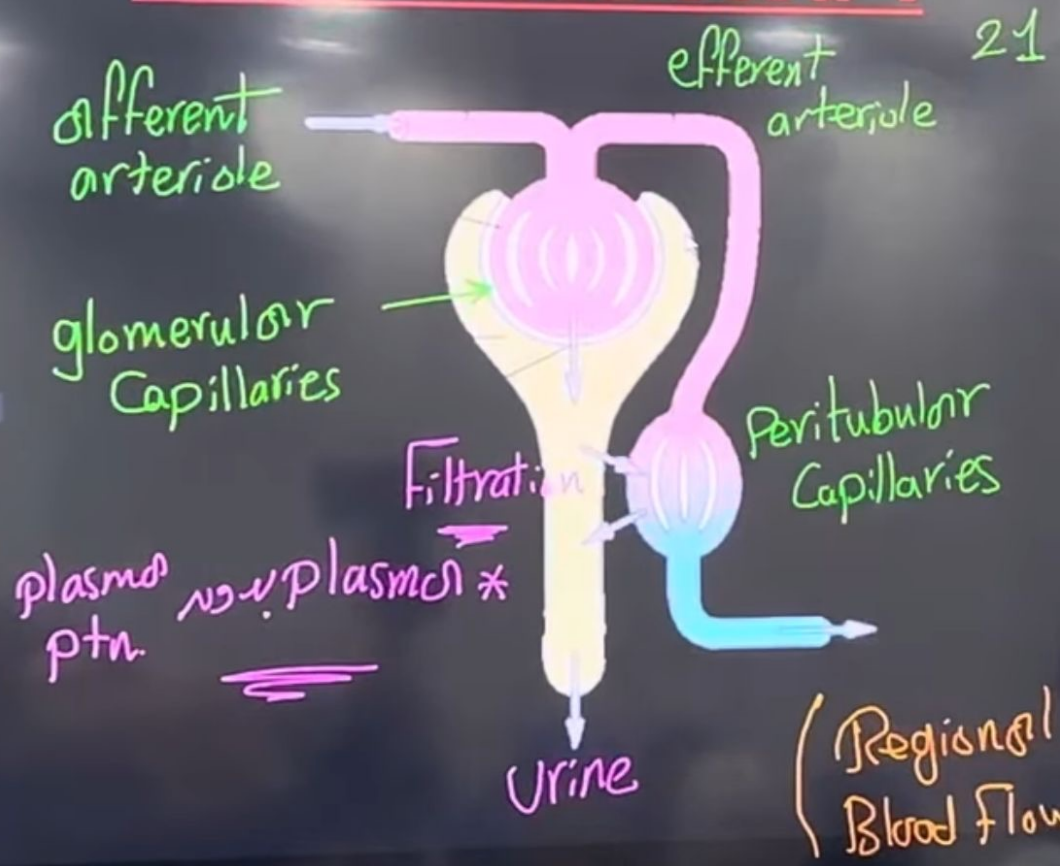 21
efferent
arteriole
afferent
arteriole
glomerular
Capillaries
Peritubular
Capillaries
Filtration
* plasma بدون plasma
ptn.
Urine
(Regional
Blood Flow